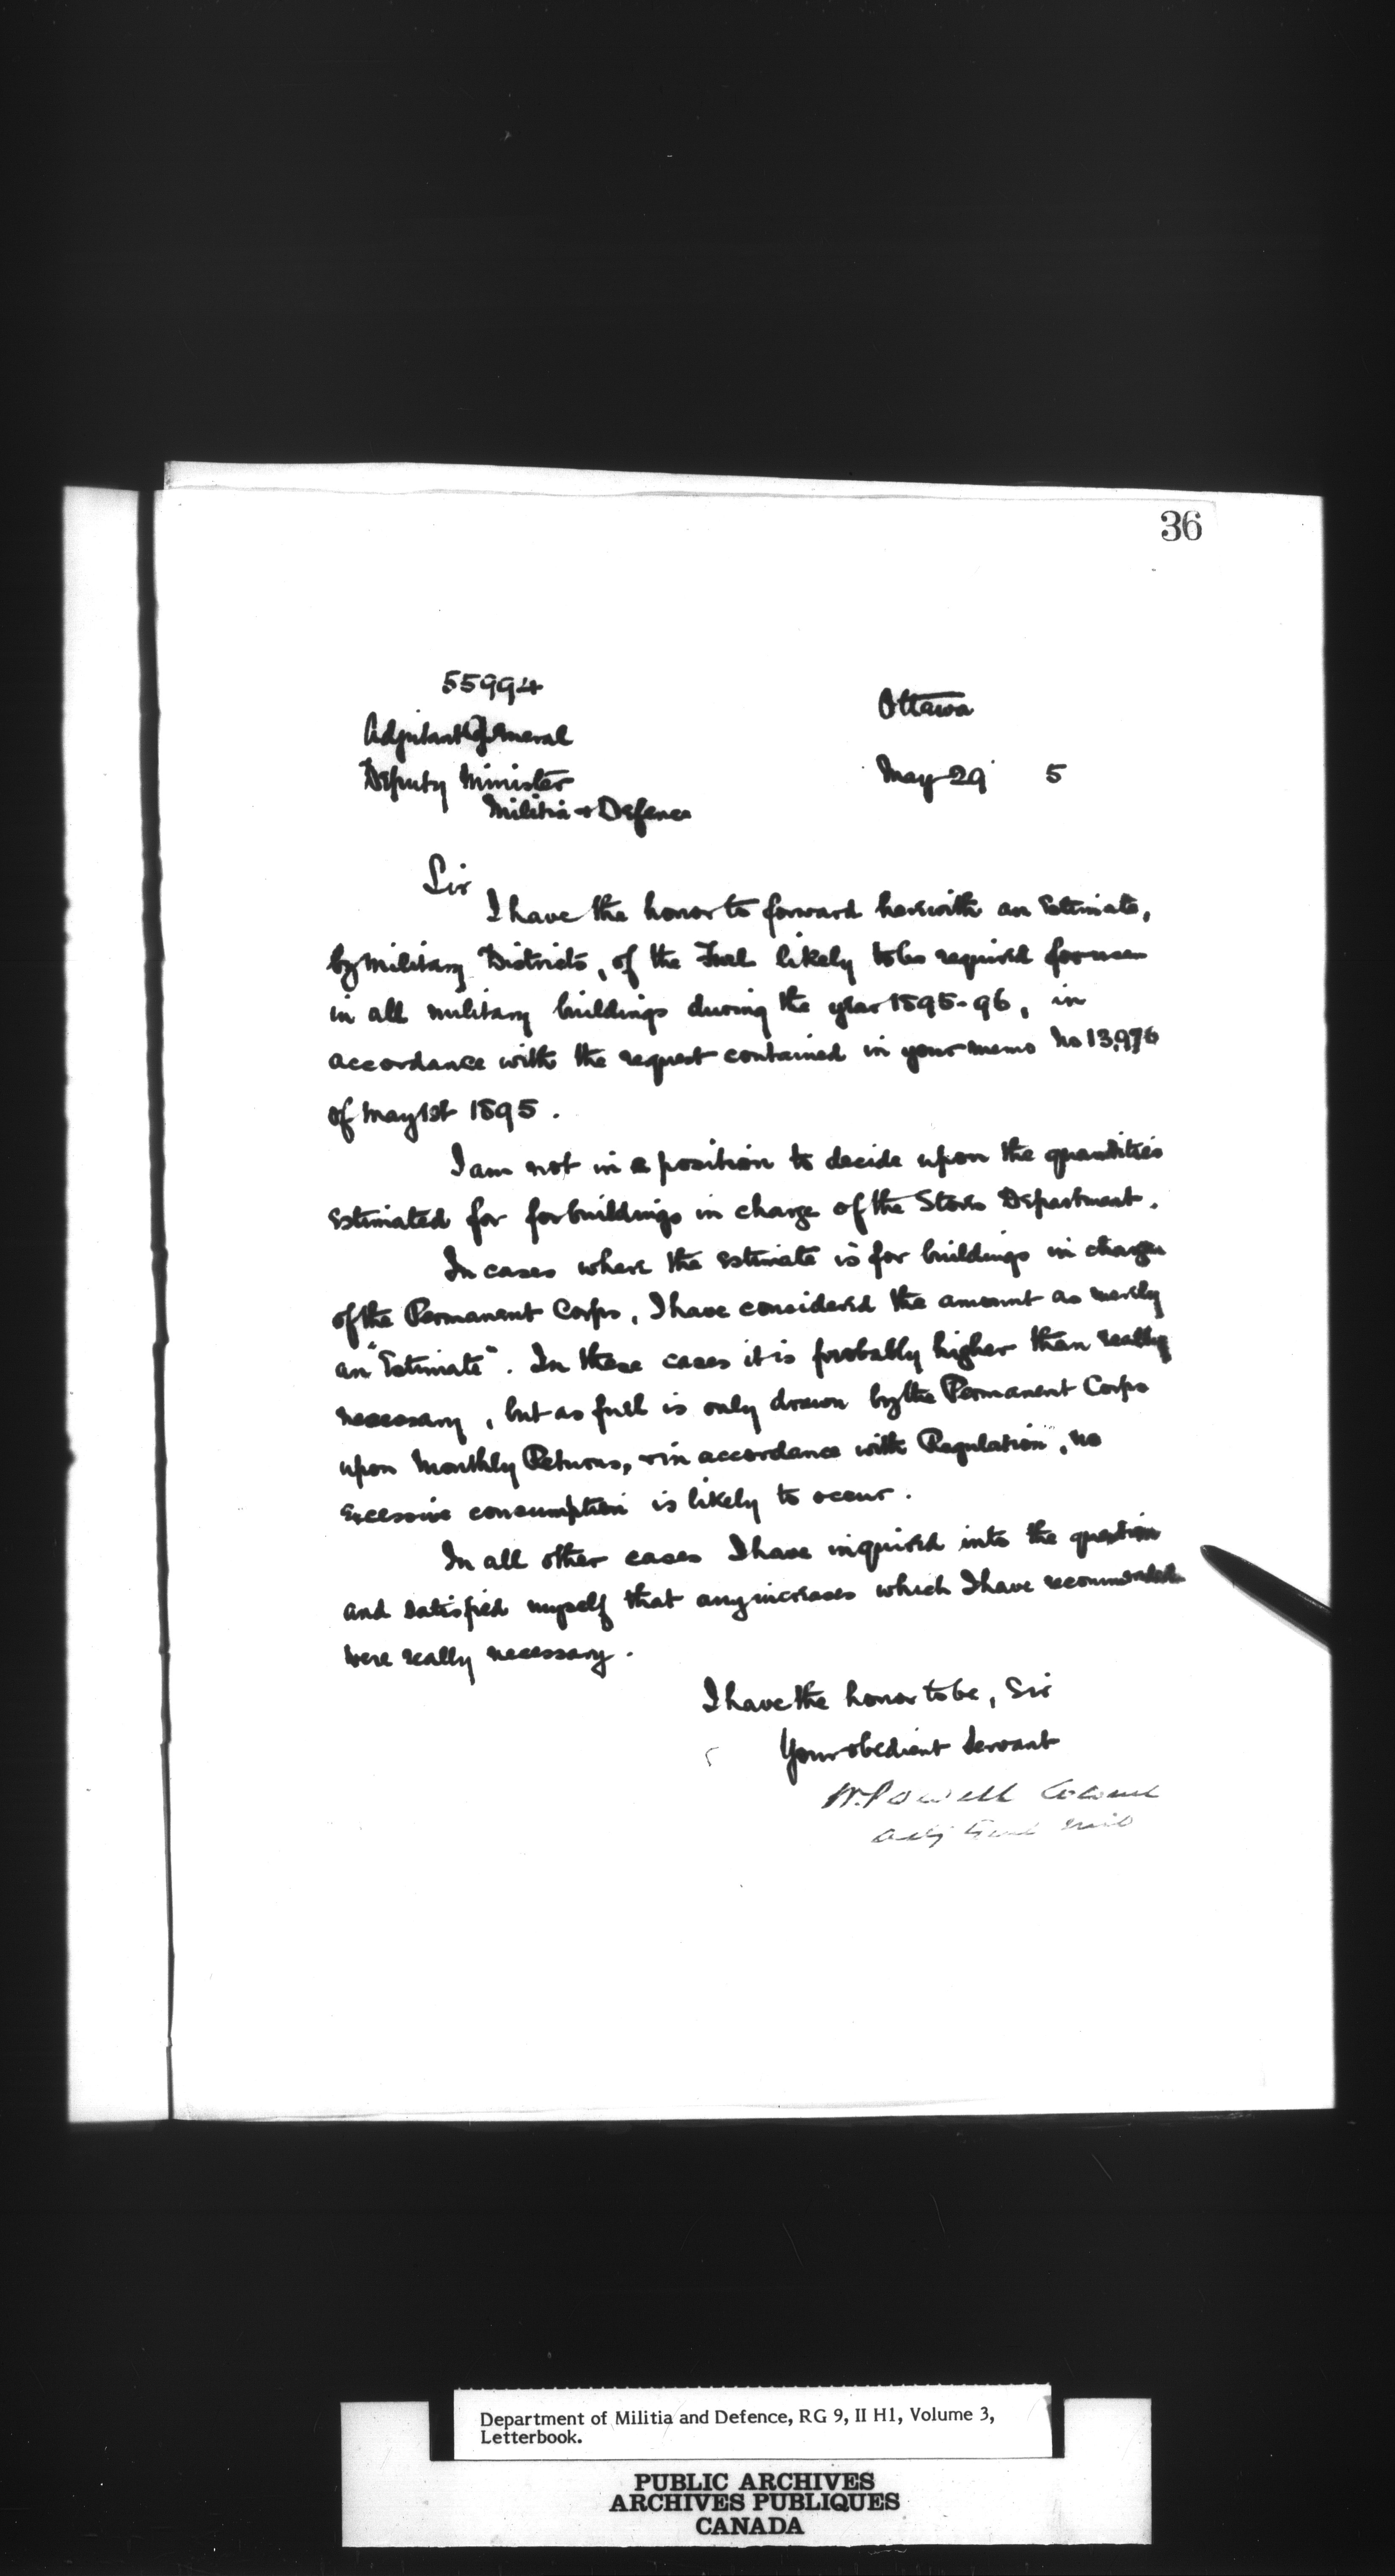 36
55994
Adjutant General
Ottawa
Deputy Minister
Militia & Defence
May 29 5
Sir
I have the honor to forward herewith an Estimate,
by Military Districts, of the Fuel likely to be required for use
in all military buildings during the year 1895-96, in
accordance with the request contained in your memo No 13,976
of May 1st 1895.
I am not in a position to decide upon the quantities
Estimated for for buildings in charge of the Stores Department.
In cases where the Estimate is for buildings in charge
of the Permanent Corps, I have considered the amount as merely
an "Estimate". In these cases it is probably higher than really
necessary, but as fuel is only drawn by the Permanent Corps
upon Monthly Returns, & in accordance with Regulation", no
Excessive consumption is likely to occur.
In all other cases I have inquired into the question
and satisfied myself that any increases which I have recommended
were really necessary.
I have the honor to be, Sir
Your obedient Servant
W. Powell Colonel
Adjt Genl
Department of Militia and Defence, RG 9, II H1, Volume 3,
Letterbook.
PUBLIC ARCHIVES
ARCHIVES PUBLIQUES
CANADA